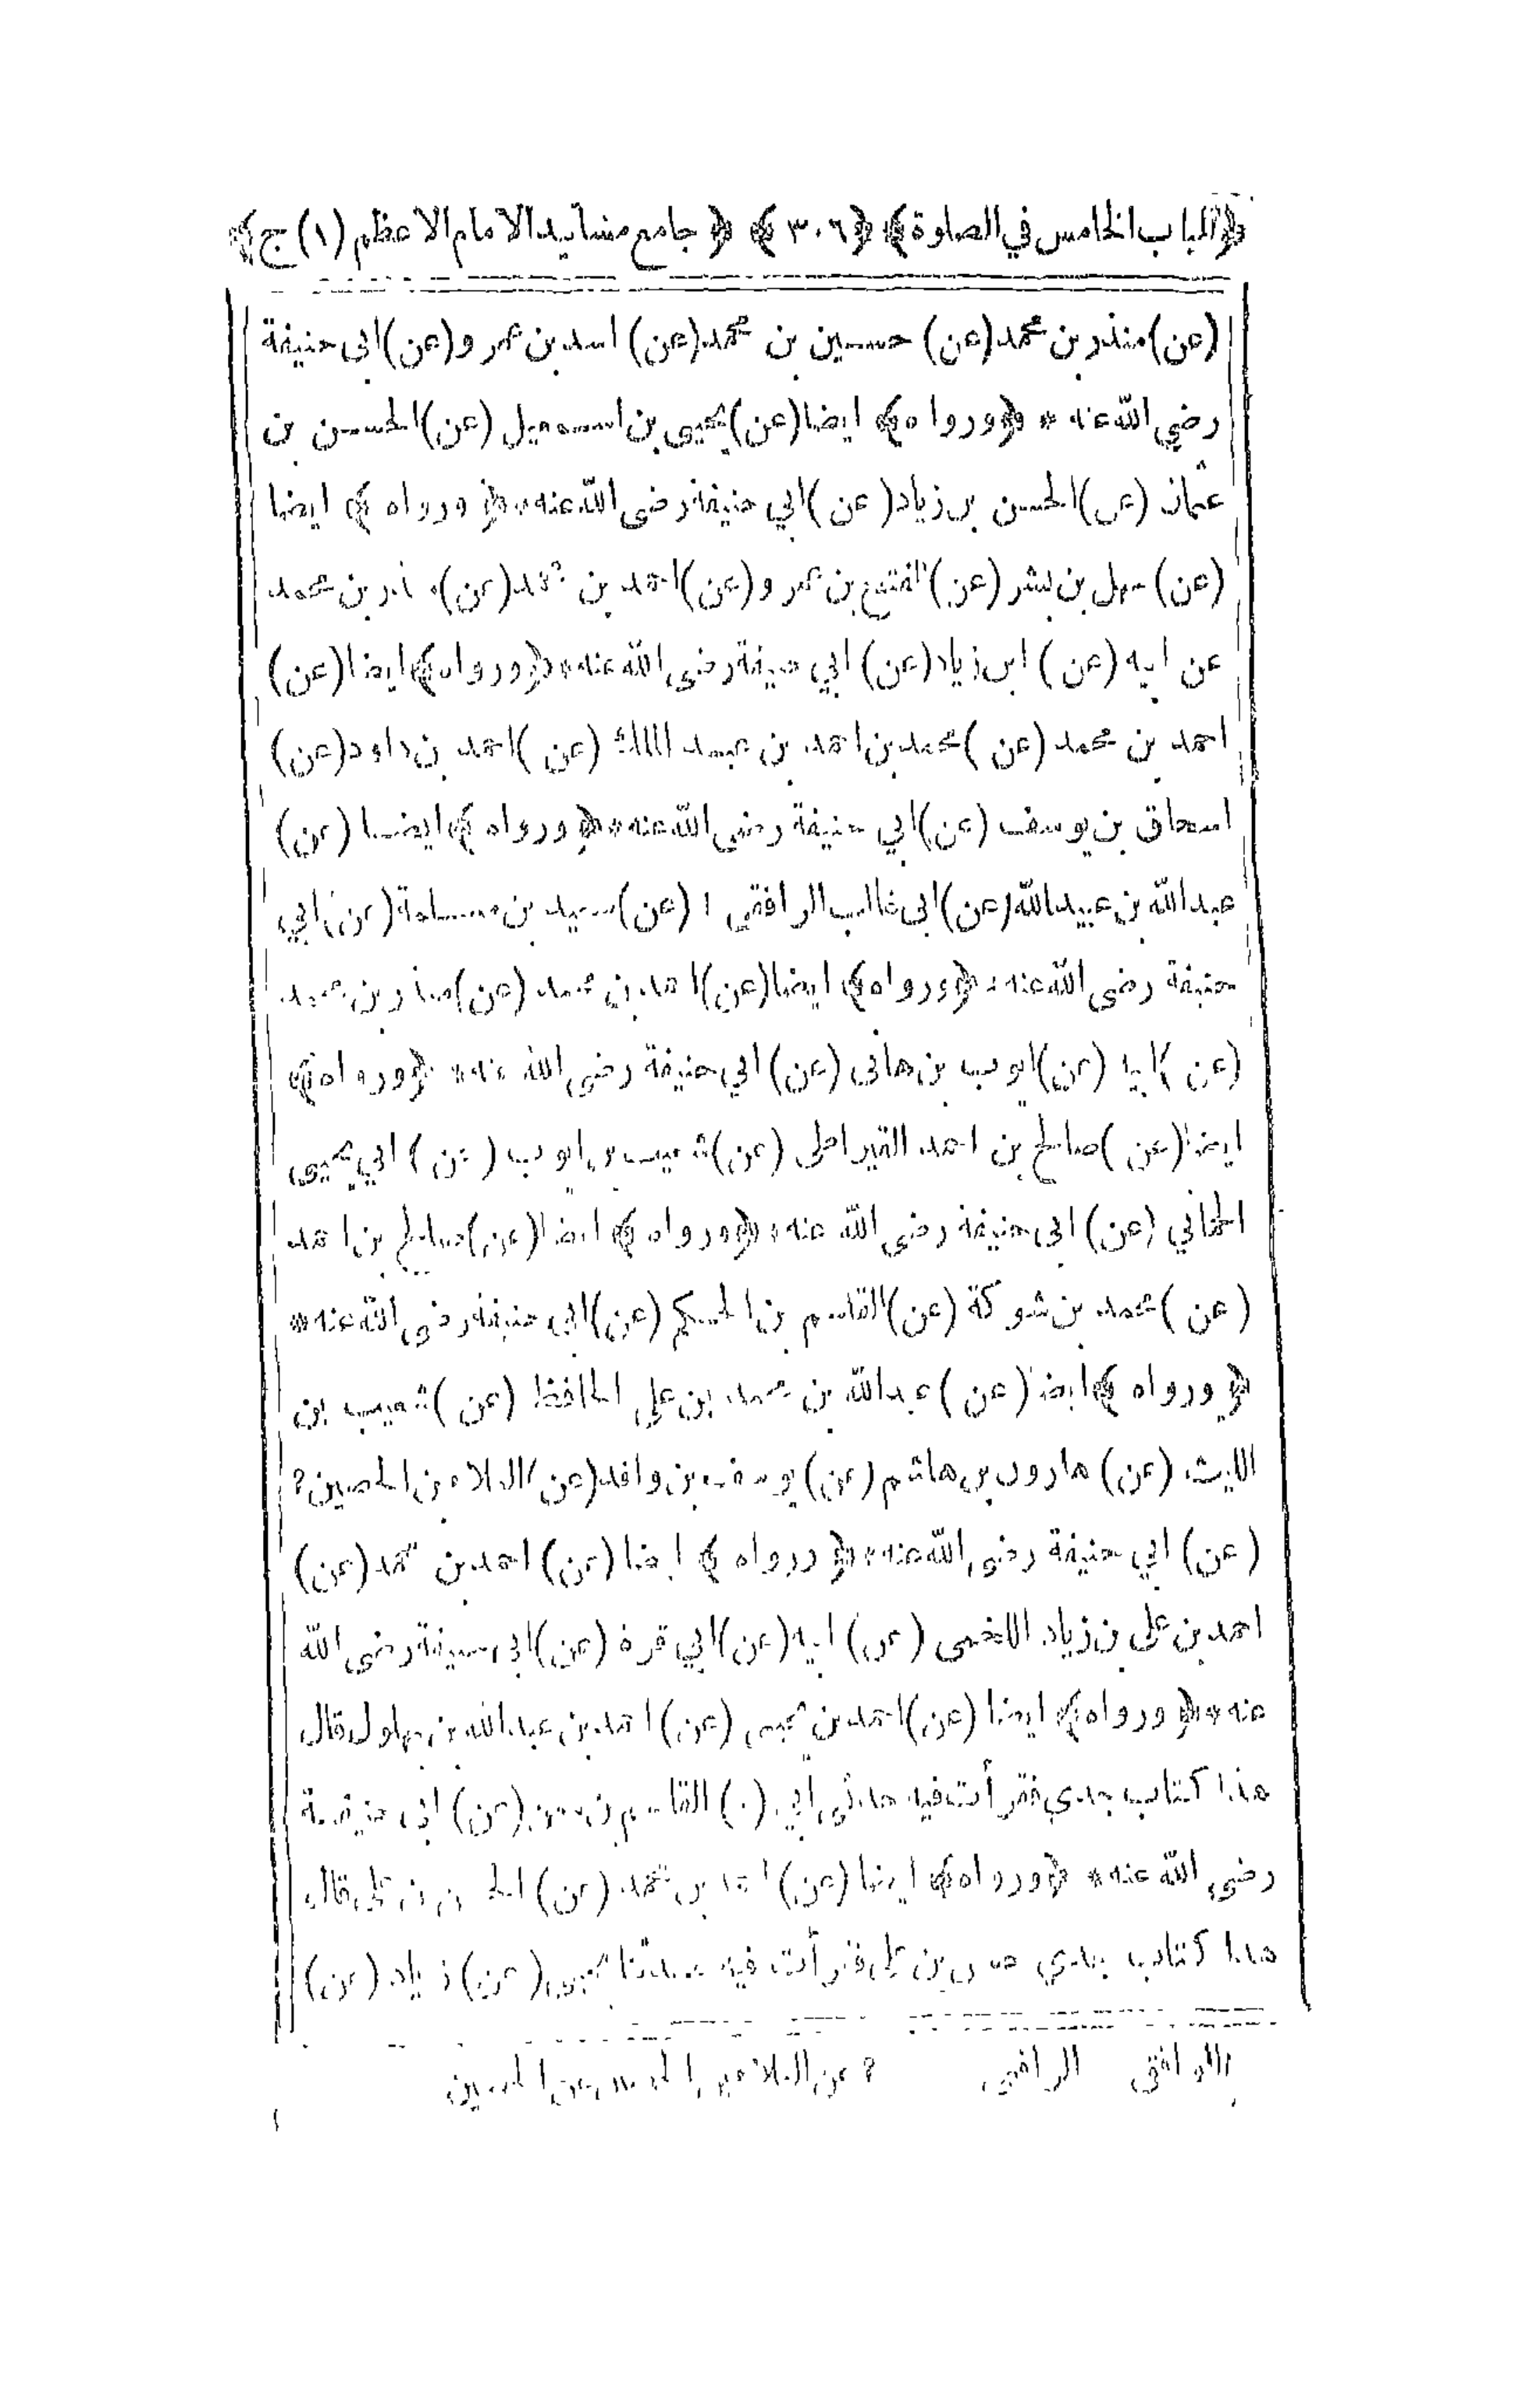 ﴿الباب الخامس في الصلوة﴾ ﴿٣٠٦﴾ ﴿جامع مسانيد الامام الاعظم (١) ج﴾
(عن) منذر بن محمد (عن) حسين بن محمد (عن) اسد بن عمرو (عن) ابى حنيفة
رضي الله عنه * ﴿ورواه﴾ ايضا (عن) يحيى بن اسمعيل (عن) الحسن بن
عثمان (عن) الحسن بن زياد (عن) ابي حنيفة رضى الله عنه * ﴿ورواه﴾ ايضا
(عن) سهل بن بشر (عن) الفتح بن عمرو (عن) احمد بن محمد (عن) منذر بن محمد
عن ابيه (عن) ابن زياد (عن) ابي حنيفة رضى الله عنه * ﴿ورواه﴾ ايضا (عن)
احمد بن محمد (عن) محمد بن احمد بن عبد الملك (عن) احمد بن داود (عن)
اسحاق بن يوسف (عن) ابي حنيفة رضى الله عنه * ﴿ورواه﴾ ايضا (عن)
عبد الله بن عبيد الله (عن) ابى غالب الرافقى ١ (عن) سعيد بن مسلمة (عن) ابي
حنيفة رضى الله عنه * ﴿ورواه﴾ ايضا (عن) احمد بن محمد (عن) منذر بن محمد
(عن) ابيه (عن) ايوب بن هانى (عن) ابي حنيفة رضى الله عنه * ﴿ورواه﴾
ايضا (عن) صالح بن احمد القيراطى (عن) شعيب بن ايوب (عن) ابي يحيى
الحماني (عن) ابى حنيفة رضى الله عنه * ﴿ورواه﴾ ايضا (عن) صالح بن احمد
(عن) محمد بن شوكة (عن) القاسم بن الحكم (عن) ابي حنيفة رضى الله عنه *
﴿ورواه﴾ ايضا (عن) عبد الله بن محمد بن علي الحافظ (عن) شعيب بن
الليث (عن) هارون بن هاشم (عن) يوسف بن واقد (عن) العلاء بن الحصين ٢
(عن) ابي حنيفة رضى الله عنه * ﴿ورواه﴾ ايضا (عن) احمد بن محمد (عن)
احمد بن على بن زياد اللخمى (عن) ابيه (عن) ابي قرة (عن) ابى حنيفة رضى الله
عنه * ﴿ورواه﴾ ايضا (عن) احمد بن يحيى (عن) احمد بن عبد الله بن بهلول قال
هذا كتاب جدي فقرأت فيه حدثنى أبي القاسم بن معن (عن) ابى حنيفة
رضى الله عنه * ﴿ورواه﴾ ايضا (عن) احمد بن محمد (عن) الحسن بن على قال
هذا كتاب جدي بن على فقرأت فيه حدثنا يحيى (عن) زياد (عن)
الرافقى الرافعى ٢ عن العلاء عن الحصين